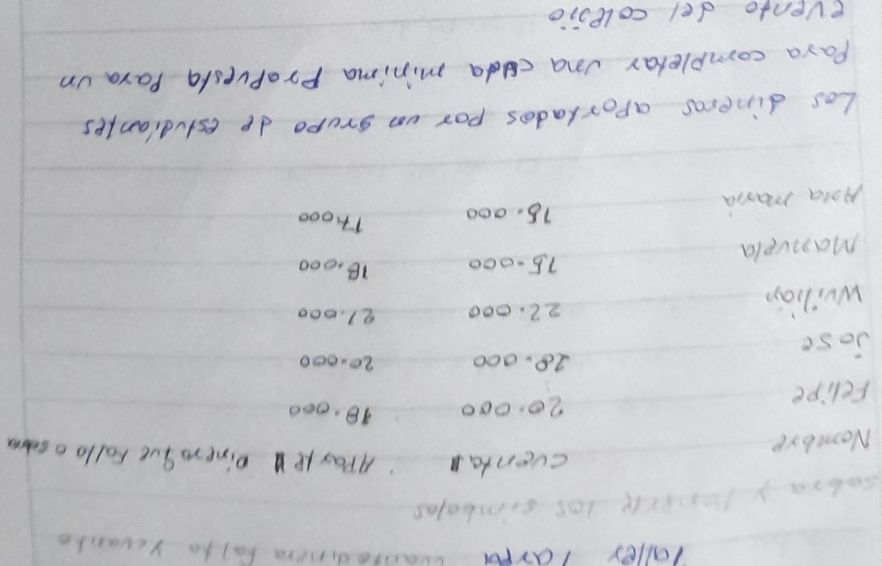 Taller cuanto dinero falta y cuanto
sobra y los simbolos
Nombre cuenta Aporte Dinero que falta o sobra
Felipe 20.000 18.000
Jose 28.000 20.000
Wuilian 22.000 21.000
Manuela 15.000 18.000
Ana maria 15.000 17.000
Los dineros aportados por un grupo de estudiantes
Para completar una minima Propuesta Para un
evento del colegio